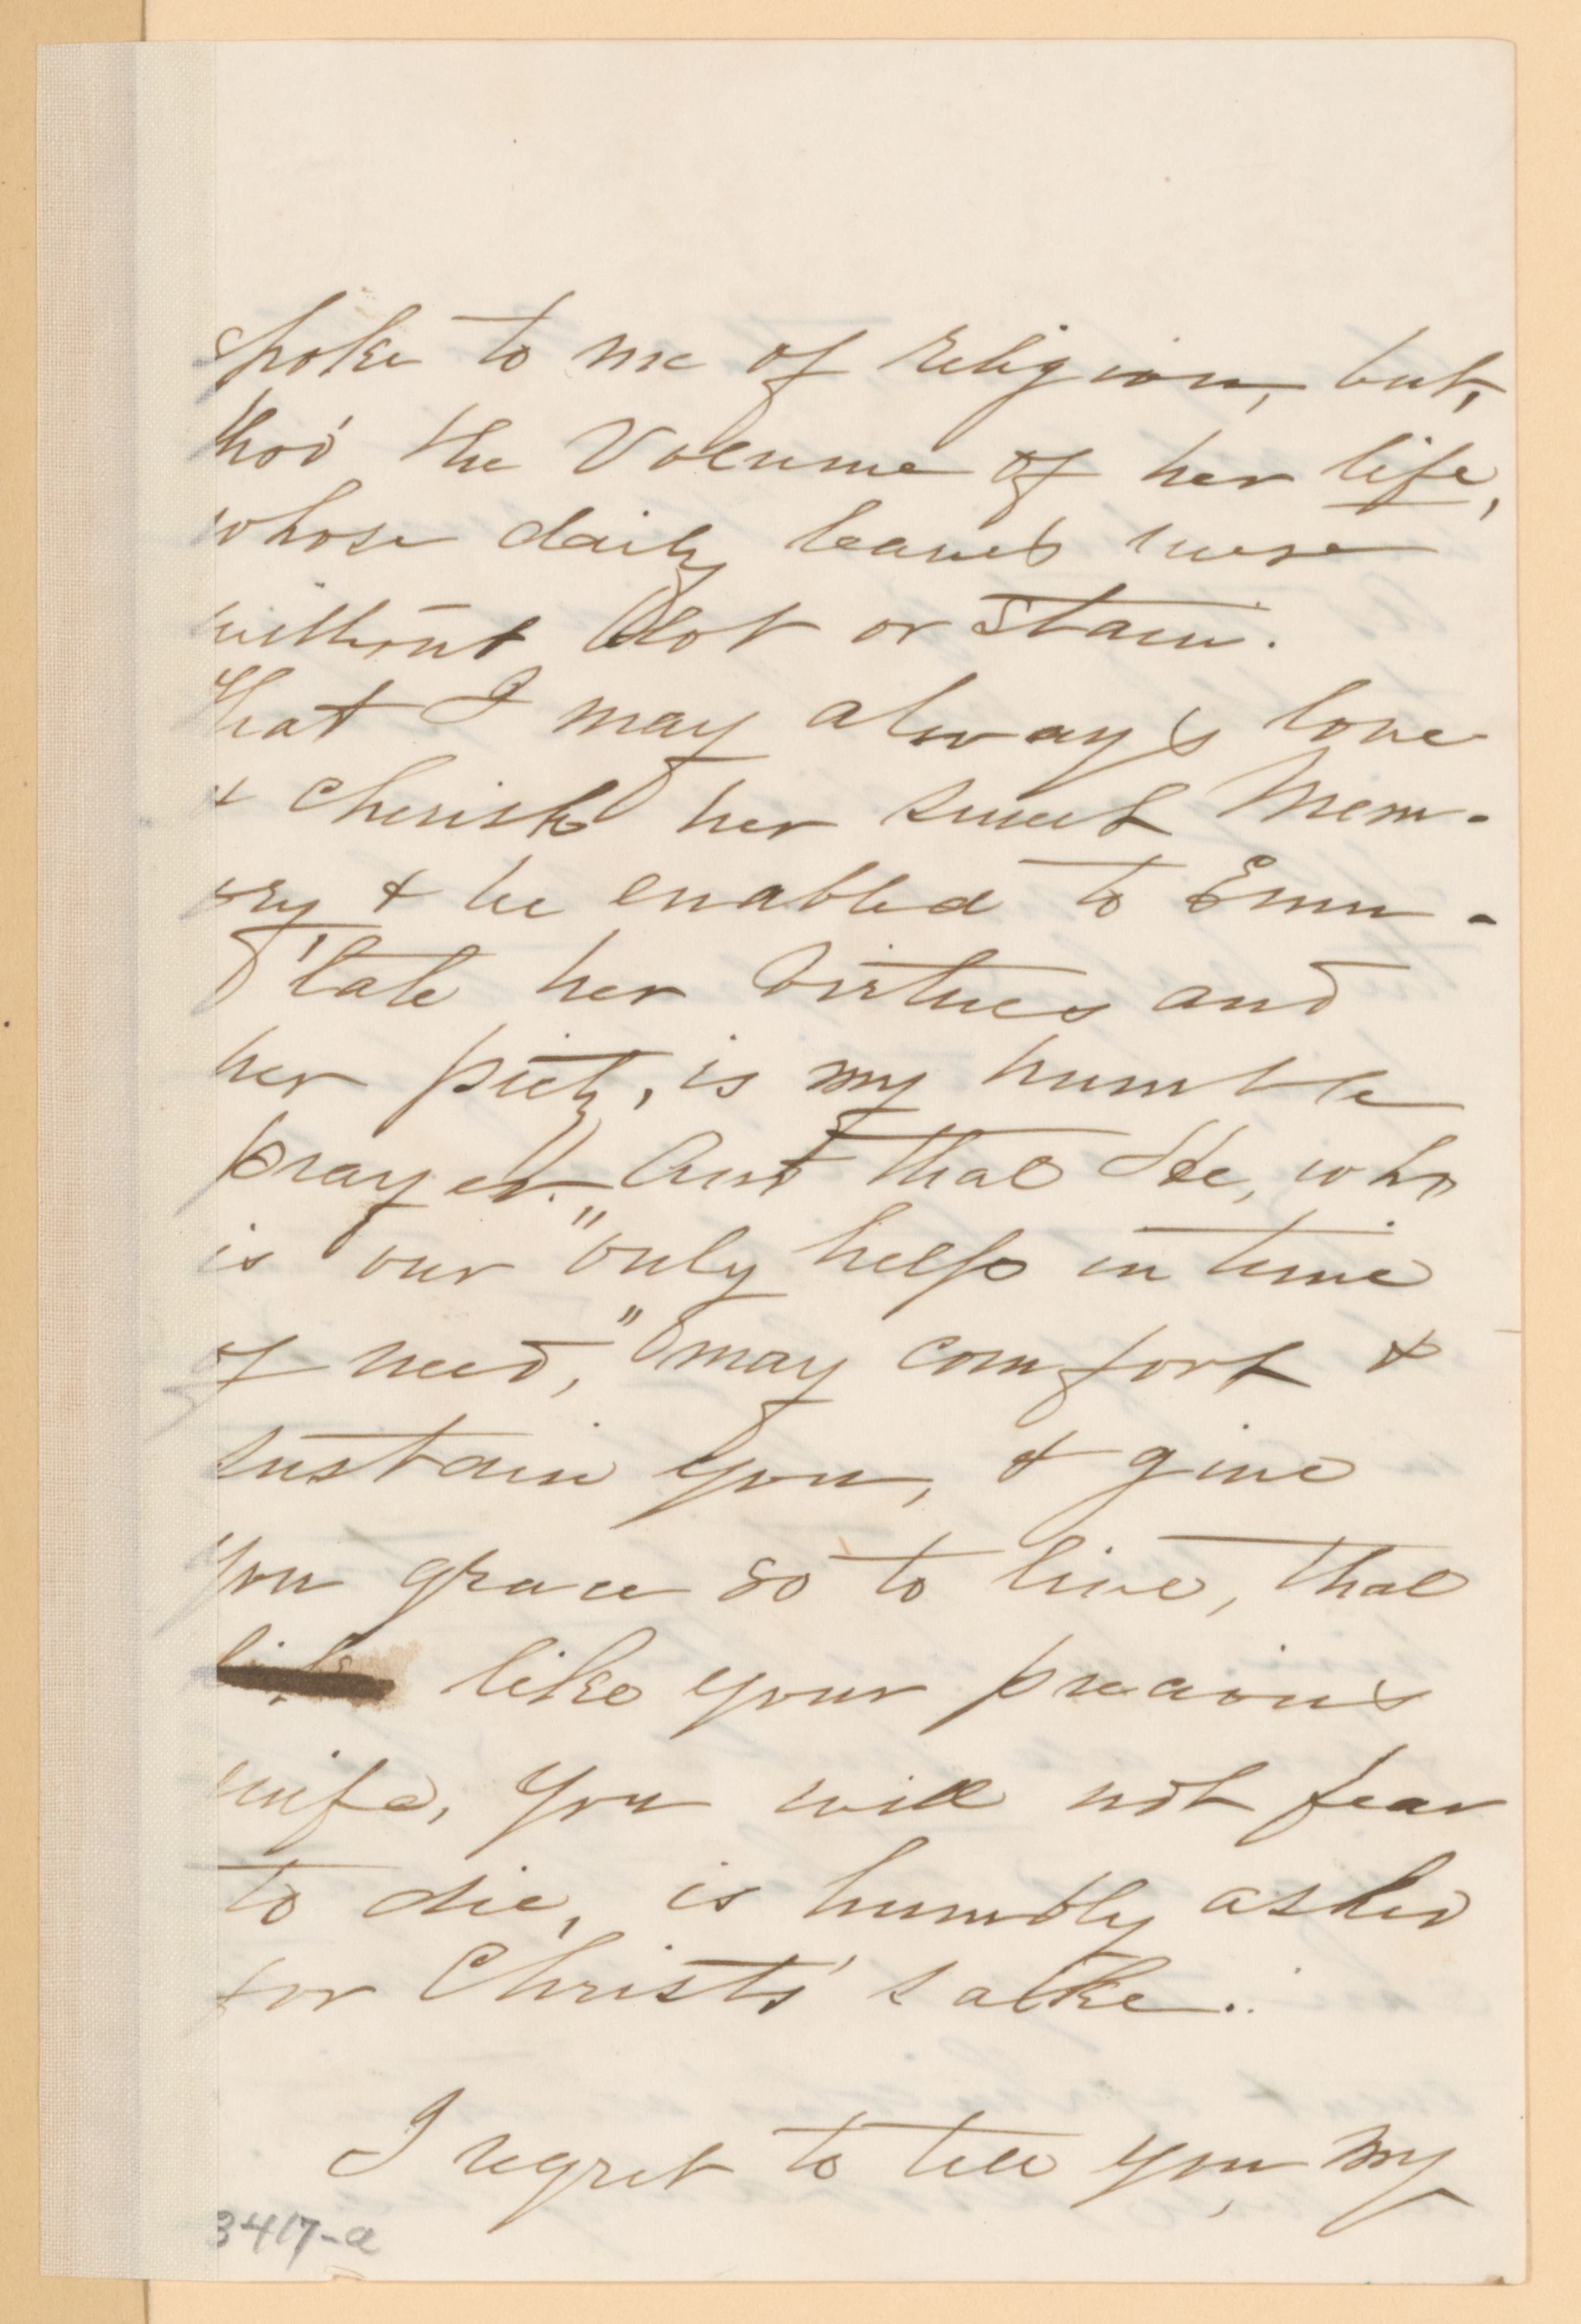 spoke to me of religion, but,
tho' the Volume of her life,
whose daily leaves were
without blot or stain.
That I may always love
& cherish her sweet Mem-
ory & be enabled to Emu-
'late her virtues and
her piety, is my humble
prayer. And that He, who
is our "only help in time
of need," may comfort &
sustain you, & give
you grace so to live, that
like your precious
wife, you will not fear
to die, is humbly asked
for Christs' sake.
I regret to tell you, my
3417-a